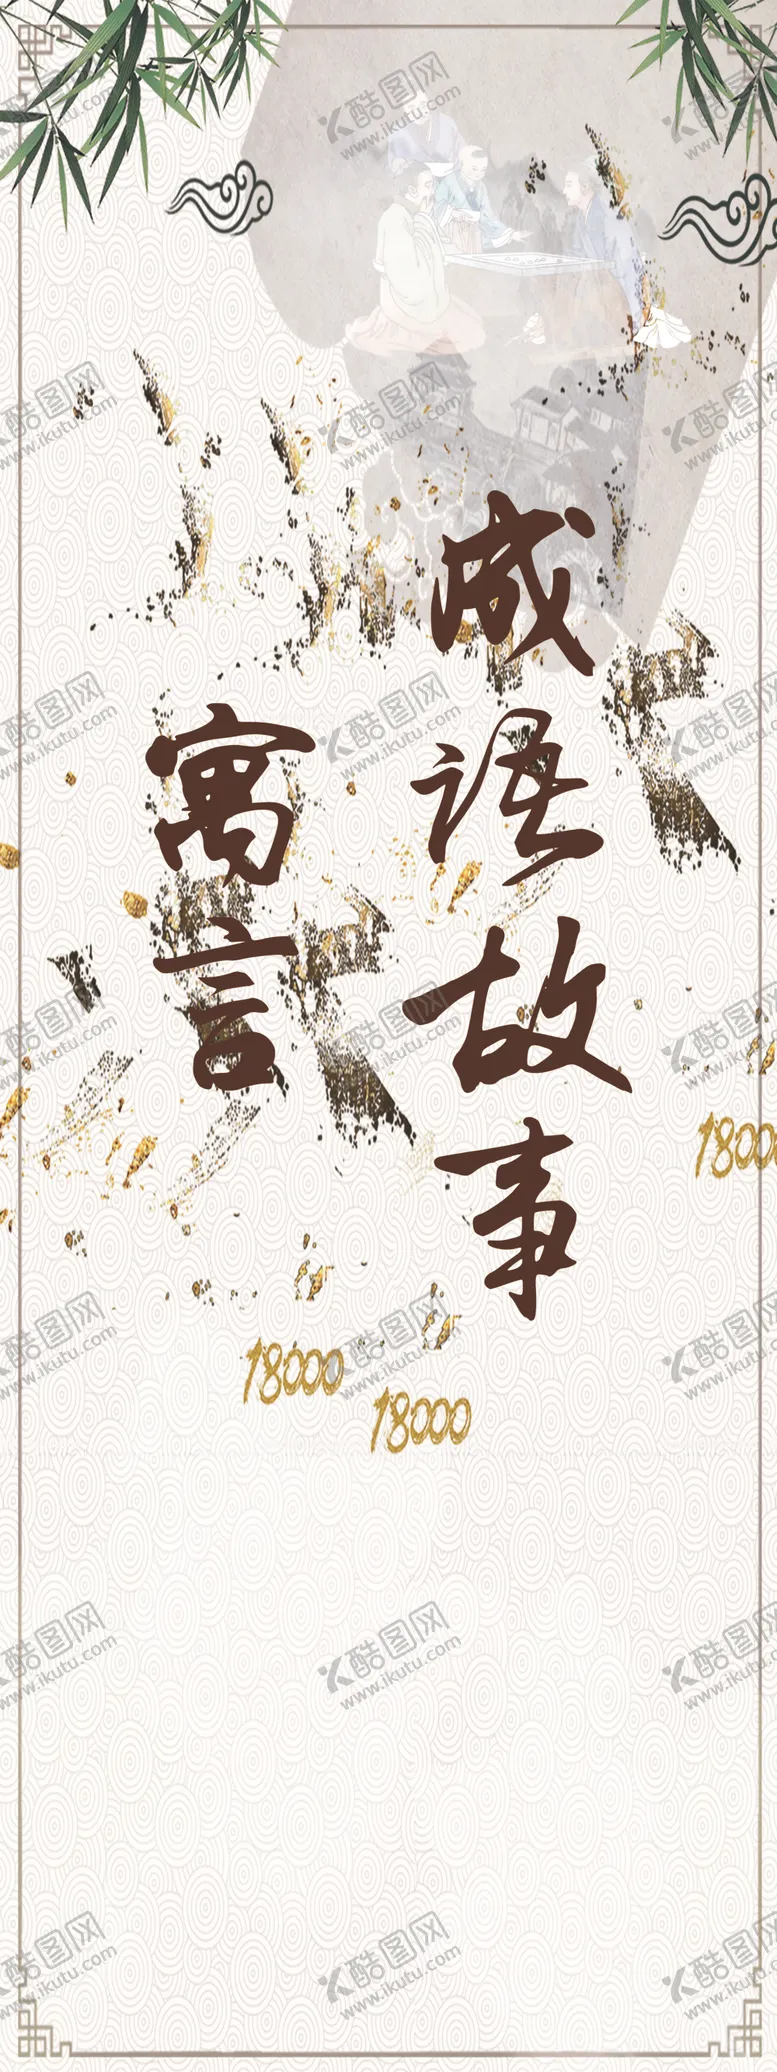 成语故事
寓言
18000
18000
18000
酷图网
www.ikutu.com